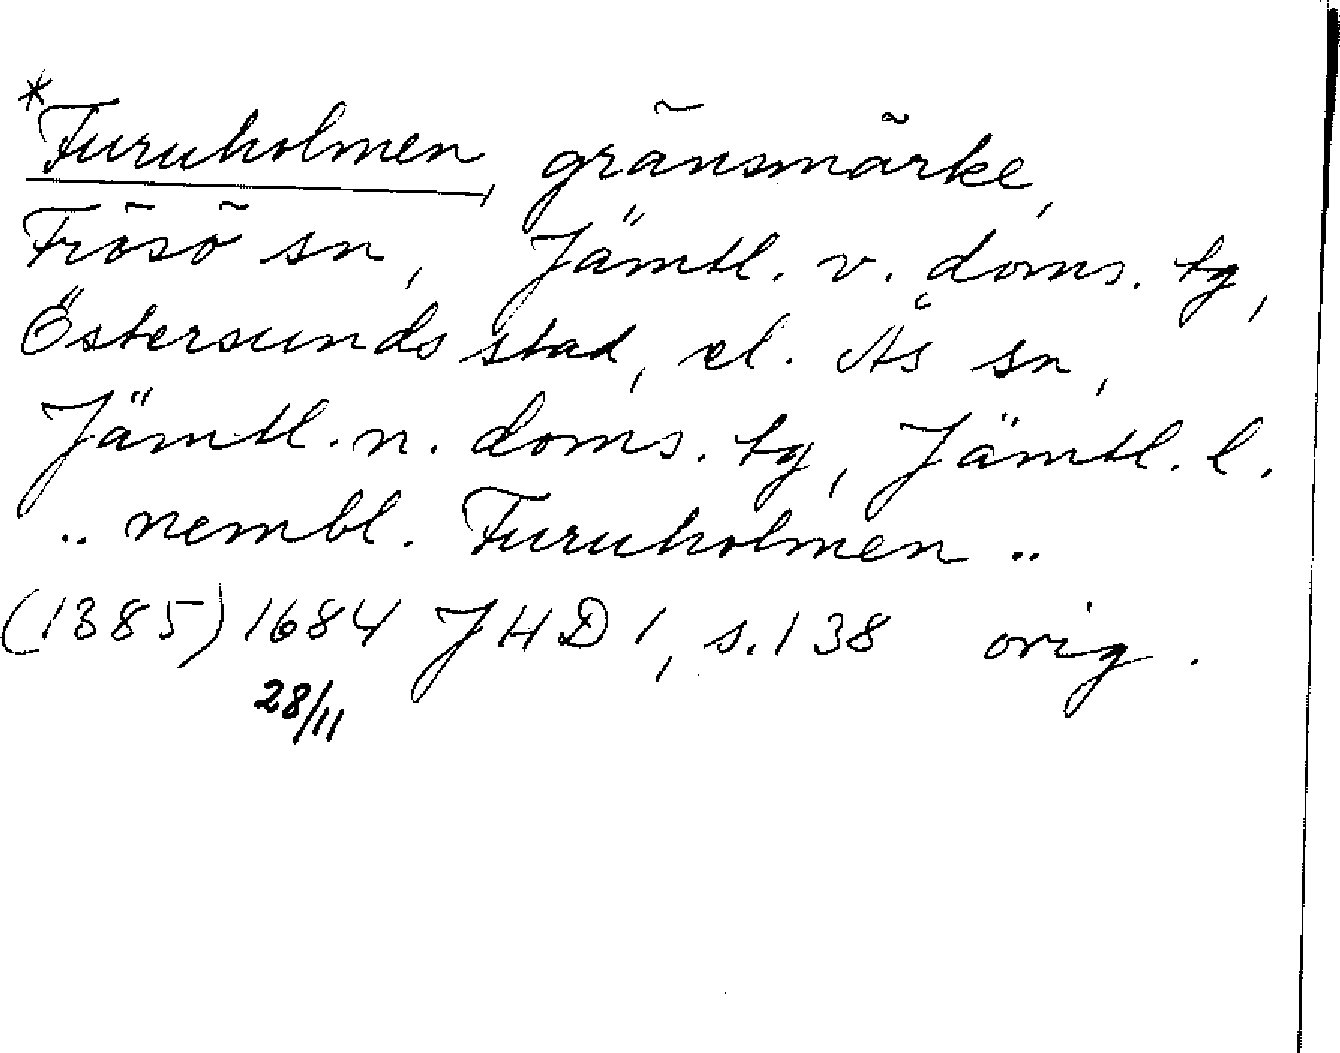 *Furuholmen, gränsmärke,
Frösö sn, Jämtl. v. doms. tg,
Östersunds stad, el. Ås sn,
Jämtl. n. doms. tg, Jämtl. l.
.. nembl. Furuholmen ..
(1385) 1684 JHD 1, s. 138 orig.
28/11